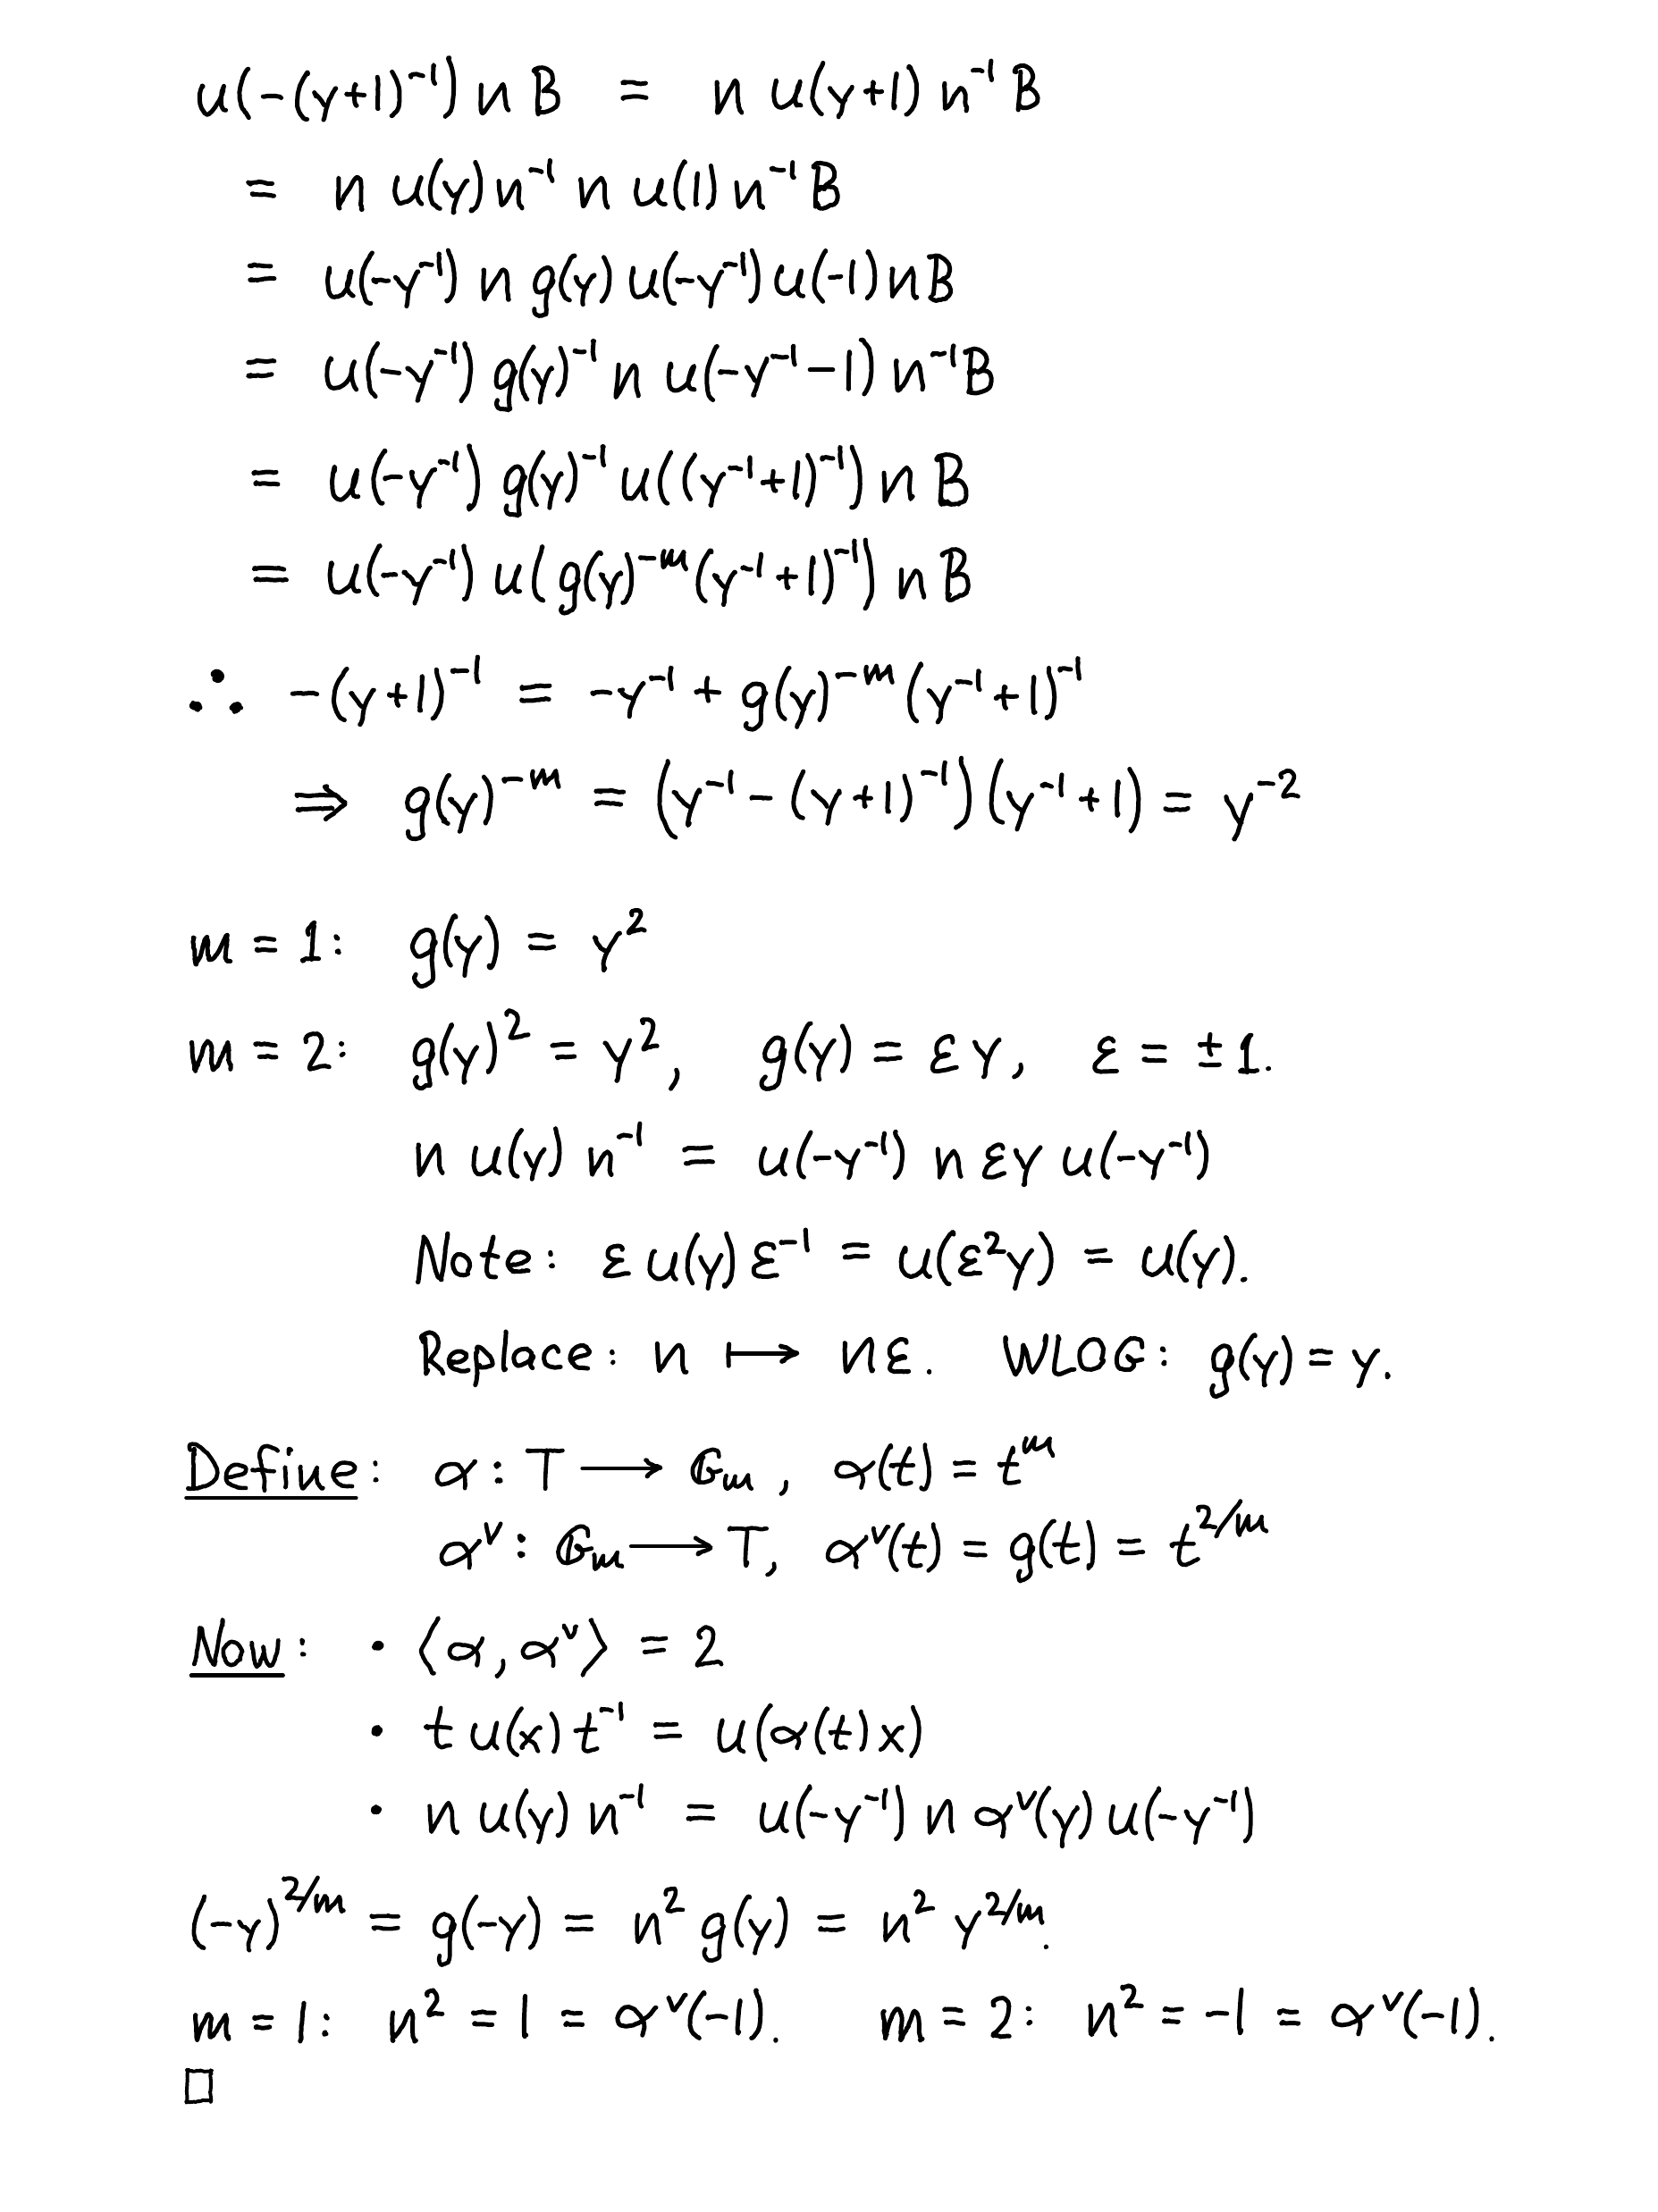 u(-(y+1)⁻¹) n B = n u(y+1) n⁻¹ B
= n u(y) n⁻¹ n u(1) n⁻¹ B
= u(-y⁻¹) n g(y) u(-y⁻¹) u(-1) n B
= u(-y⁻¹) g(y)⁻¹ n u(-y⁻¹-1) n⁻¹ B
= u(-y⁻¹) g(y)⁻¹ u((y⁻¹+1)⁻¹) n B
= u(-y⁻¹) u(g(y)⁻ᵐ (y⁻¹+1)⁻¹) n B
∴ -(y+1)⁻¹ = -y⁻¹ + g(y)⁻ᵐ (y⁻¹+1)⁻¹
⇒ g(y)⁻ᵐ = (y⁻¹ - (y+1)⁻¹)(y⁻¹+1) = y⁻²
m = 1: g(y) = y²
m = 2: g(y)² = y², g(y) = εy, ε = ±1.
n u(y) n⁻¹ = u(-y⁻¹) n εy u(-y⁻¹)
Note: ε u(y) ε⁻¹ = u(ε²y) = u(y).
Replace: n ↦ nε. WLOG: g(y) = y.
Define: α: T ⟶ 𝔾ₘ, α(t) = tᵐ
α^∨: 𝔾ₘ ⟶ T, α^∨(t) = g(t) = t^{2/m}
Now: • ⟨α, α^∨⟩ = 2
• t u(x) t⁻¹ = u(α(t)x)
• n u(y) n⁻¹ = u(-y⁻¹) n α^∨(y) u(-y⁻¹)
(-y)^{2/m} = g(-y) = n² g(y) = n² y^{2/m}.
m = 1: n² = 1 = α^∨(-1). m = 2: n² = -1 = α^∨(-1).
□